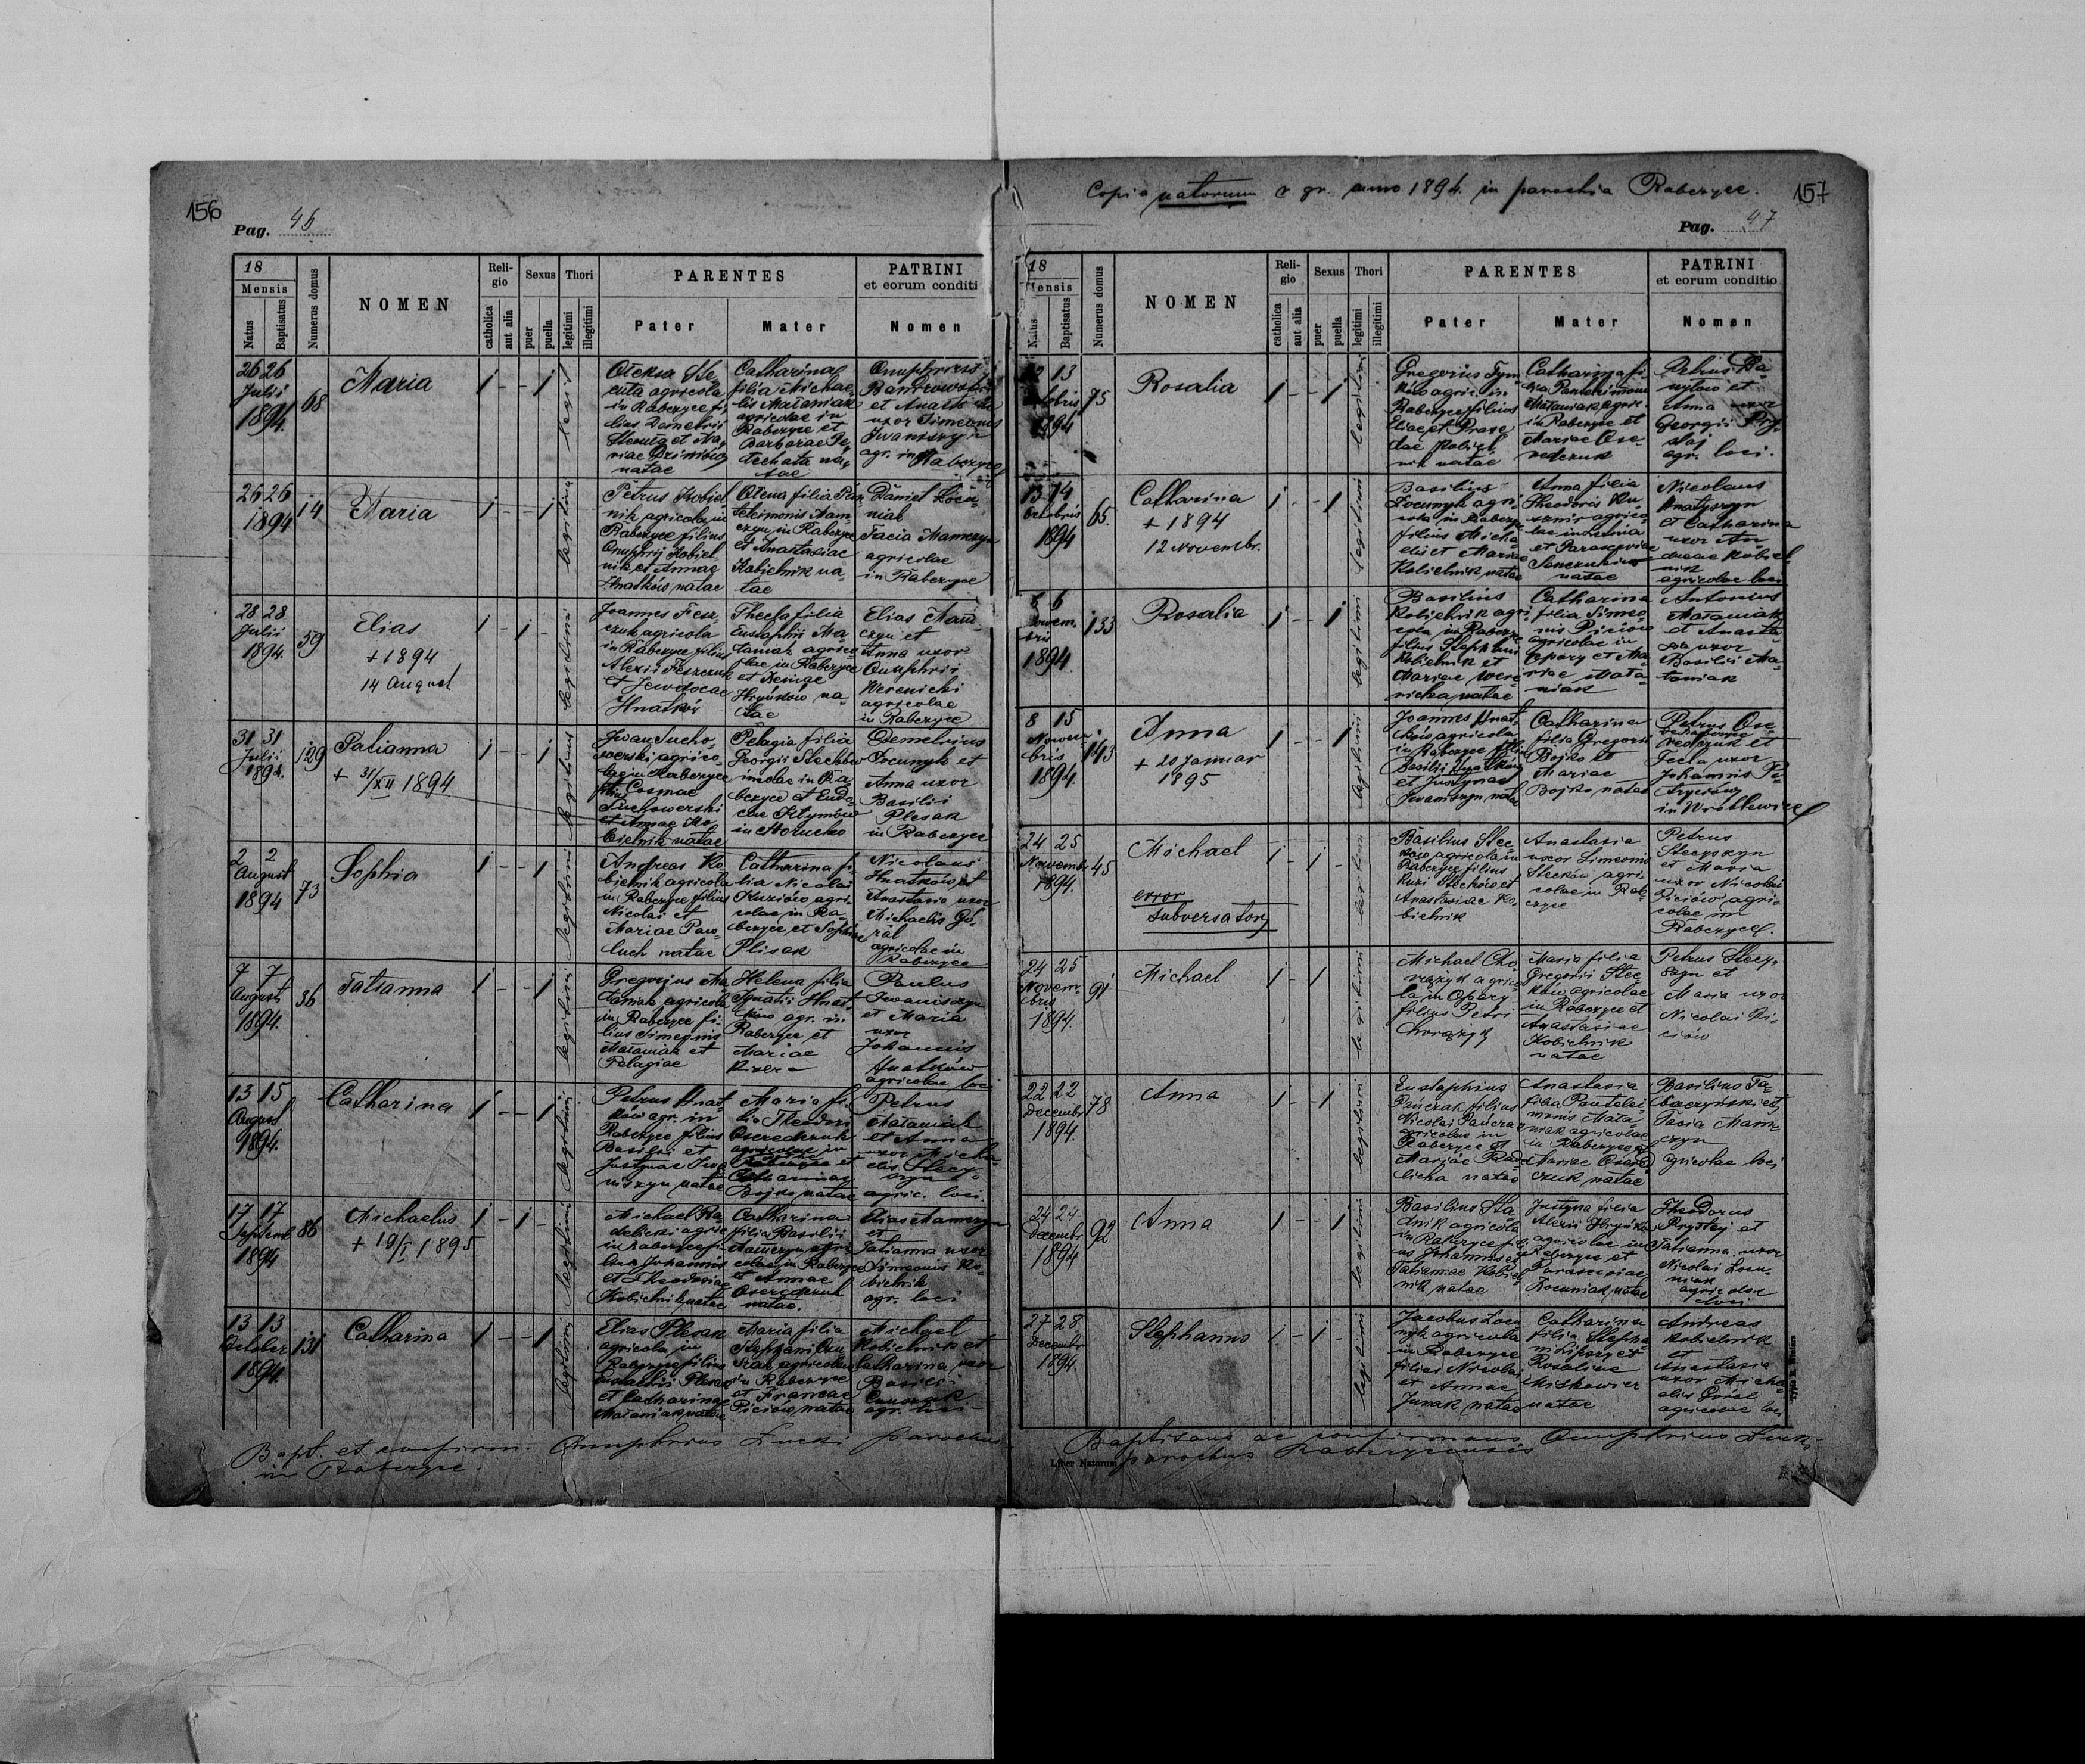 156
Pag. 46
18
Mensis
Natus
Baptisatus
Numerus domus
NOMEN
Religio
catholica
aut alia
Sexus
puer
puella
Thori
legitimi
illegitimi
PARENTES
Pater
Mater
PATRINI
et eorum conditi
Nomen
26 26
Julii
1894.
68
Maria
agricola
in Rabczyce fi-
lius Demetrii
natae
Catharina
filia Michae-
lis Mataniak
agricolae in
Rabczyce et
Barbarae
et
uxor Simeonis
Iwaniszyn
agr. in Rabczyce
26 26
1894
14
Maria
Petrus Kobiel-
nik agricola in
Rabczyce filius
Onuphrij Kobiel
nik et Annae
Hnatków natae
Olena filia Pan
teleimonis Mam-
czyn in Rabczyce
et Anastasiae
Kobielnik na-
tae
Daniel
Tacia Mamczyn
agricolae
in Rabczyce
28 28
Julii
1894.
59
Elias
+ 1894
14 August
Joannes Fesz-
czuk agricola
in Rabczyce filius
Alexii Feszczuk
et Jewdocae
Hnatków
Thecla filia
Eustaphii Ma-
taniak agrico-
lae in Rabczyce
et Xeniae
Hryńków na-
tae
Elias Mam-
czyn et
Anna uxor
Onuphrii
Werenicki
agricolae
in Rabczyce
31 31
Julii
1894.
129
Tatianna
+ 31/XII 1894
Iwan Sucho-
werski agrico-
la in Rabczyce
filius Cosmae
Suchowerski
et Annae Ko-
bielnik natae
Pelagia filia
Georgii Steckow
incolae in Ra
bczyce et Eudo-
ciae Klymów
in Horucko
Demetrius
Locunyk et
Anna uxor
Basilii
Plesak
in Rabczyce
2 2
August
1894
73
Sophia
Andreas Ko
bielnik agricola
in Rabczyce filius
Nicolai et
Mariae Paw-
luch natae
Catharina fi-
lia Nicolai
Kuziów agri-
colae in Ra-
bczyce et Sophiae
Plisak
Nicolaus
Hnatków et
Anastasia uxor
Michaelis Gó-
ral
agricolae in
Rabczyce
7 7
August
1894.
36
Tatianna
Gregorius Ma
taniak agricola
in Rabczyce fi-
lius Simeonis
Mataniak et
Pelagiae
Helena filia
Ignatii Hnat-
ków agr. in
Rabczyce et
Mariae
Paulus
Iwaniszyn
et Maria
uxor
Johannis
Hnatków
agricolae loci
13 15
August
1894.
Catharina
Petrus Hnat-
ków agr. in
Rabczyce filius
Basilii et
Justynae Iwa
niszyn natae
Maria fi-
lia Theodori
Oseredczuk
agricolae in
Rabczyce et
Catharinae
Bojko natae
Petrus
Mataniak
et Anna
uxor Micha-
elis Stecy-
szyn
agric. loci
17 17
Septemb
1894
86
Michaelus
+ 19/I 1895
Michael Ra-
delicki agric
in Rabczyce fi-
lius Johannis
et Theodosiae
Kobielnik natae
Catharina
filia Basilii
Mamczyn agri-
colae in Rabczyce
et Annae
Oseredczuk
natae.
Elias Mamczyn
et
Tatianna uxor
Simeonis Ko-
bielnik
agr. loci
13 13
October
1894.
131
Catharina
Elias Plesak
agricola in
Rabczyce filius
Eustachii Plesak
et Catharinae
Mataniak natae
Maria filia
Stephani
agricolae
in Rabczyce
et Franciae
Piciów natae
Michael
Kobielnik et
Catharina uxor
Basilii
agr. loci
Bapt. et confirm. Onuphrius Lucki parochus
in Rabczyce.
Copia natorum r. gr. anno 1894. in parochia Rabczyce.
157
Pag. 47
18
Mensis
Natus
Baptisatus
Numerus domus
NOMEN
Religio
catholica
aut alia
Sexus
puer
puella
Thori
legitimi
illegitimi
PARENTES
Pater
Mater
PATRINI
et eorum conditio
Nomen
12 13
Octobris
1894
75
Rosalia
Gregorius Tym
ków agric. in
Rabczyce filius
Eliae et Praxe
dae Kobiel-
nik natae
Catharina fi-
lia Panteleimonis
Mataniak agric
in Rabczyce et
Mariae Ose-
redczuk
Petrus Da-
nyłów et
Anna uxor
Georgii Pry-
staj
agr. loci.
13 14
Octobris
1894
65.
Catharina
+ 1894
12 Novembr.
Basilius
Locunyk agri-
cola in Rabczyce
filius Micha-
elis et Mariae
Kobielnik natae
Anna filia
Theodori
agrico-
lae in Letnia
et Parasceviae
natae
Nicolaus
Hnatyszyn
et Catharina
uxor An-
dreae Kobiel-
nik
agricolae loci
5 6
Novem-
bris
1894
133
Rosalia
Basilius
Kobielnik agri-
cola in Rabczyce
filius Stephani
Kobielnik et
Mariae Were-
nicka natae
Catharina
filia Simeo-
nis Piciów
agricolae in
Opary et Ma-
riae Mata-
niak
Antonius
Mataniak
et Anasta
sia uxor
Basilii Ma-
taniak
8 15
Novem-
bris
1894.
143
Anna
+ 20 Januar
1895
Joannes Hnat-
ków agricola
in Rabczyce filius
Basilii Hnatków
et Justynae
Iwaniszyn natae
Catharina
filia Gregorii
Bojko et
Mariae
Bojko natae
Petrus Ose-
redczuk et
Tecla uxor
Johannis Pe-
tryców
in Wróblewice
24 25
Novembr
1894.
45
Michael
error
subversatory
Basilius Stec
ków agricola in
Rabczyce filius
Steckow et
Anastasiae Ko-
bielnik
Anastasia
uxor Simeonis
Steckow agri-
colae in Rab-
czyce
Petrus
Stecyszyn
et Maria
uxor Nicolai
Piciów agri-
colae in
Rabczyce.
24 25
Novem-
bris
1894.
91
Michael
Michael Cho-
rążyk agrico-
la in Opary
filius Petri
Chorążyk
Maria filia
Gregorii Stec-
ków agricolae
in Rabczyce et
Anastasiae
Kobielnik
natae
Petrus Stecy-
szyn et
Maria uxor
Nicolai Pi-
ciów
22 22
Decembr
1894.
78
Anna
Eustaphius
Pańczak filius
Nicolai Pańczak
agricolae in
Rabczyce et
Mariae Rade-
licka natae
Anastasia
filia Pantelei-
monis Mata-
niak agricolae
in Rabczyce et
Mariae Osered-
czuk natae
Basilius Ta-
baczyński et
Tacia Mam-
czyn
agricolae loci
24 24
Decembr
1894
92
Anna
Basilius Sta-
dnik agricola
in Rabczyce fili
us Johannis et
Tatiannae Kobiel
nik natae
Justyna filia
Alexii Hryńków
agricolae in
Rabczyce et
Parasceviae
Locuniak natae
Theodorus
Prystaj et
Tatianna uxor
Nicolai Locu-
niak
agricolae
loci
27 28
Decembr
1894.
Stephanus
Jacobus Locu
nyk agricola
in Rabczyce
filius Nicolai
et Annae
Junak natae
Catharina
filia Stepha
ni Lipszy et
Rosaliae
Miskowicz
natae
Andreas
Kobielnik
et
Anastasia
uxor Micha-
elis Góral
agricolae loci
Baptisans ac confirmans Onuphrius Lucki
parochus Rabczycensis
Liber Natorum